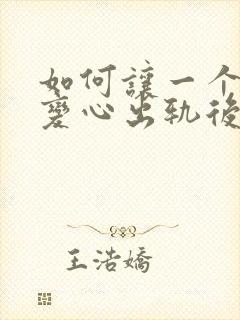 如何讓一个
變心出轨後
王浩嬌